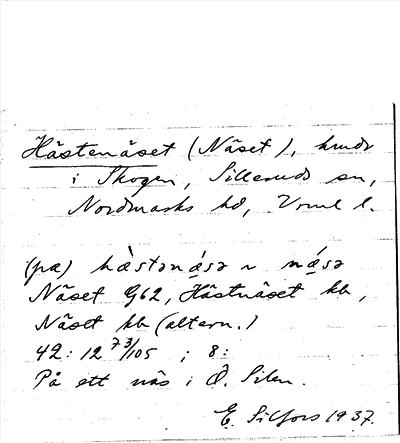 Hästenäset (Näset), hmds
i Skogen, Silleruds sn,
Nordmarks hd, Vrml l.
(pæ) hæ̀stənǽsə ~ nǽsə
Näset G62, Hästnäset kb,
Näset kb (altern.)
42: 12 73/105 ; 8:
På ett näs i Ö. Silen.
E. Silfors 1937.